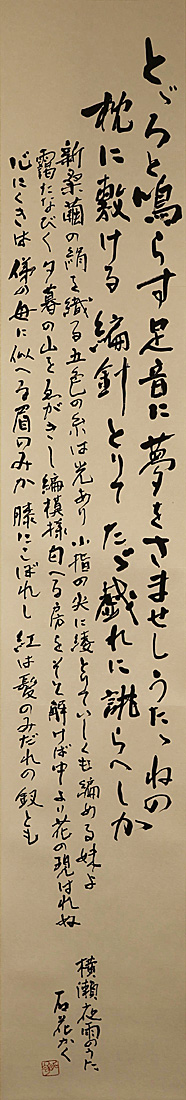 とゞろと鳴らす足音に夢をさませしうたゝねの
枕に敷ける編針とりてたゞ戯れに誂らへしか
新桑繭の絹を織る五色の糸は光あり小指の尖に倭とりていしくも編める妹よ
靄たなびく夕暮の山をゑがきし編模様匂へる房をそと解けば中より花の現はれぬ
心にくきは 母に似へる眉のみか膝にこぼれし紅は髪のみだれの釵とも
横瀬夜雨のうた
石花かく